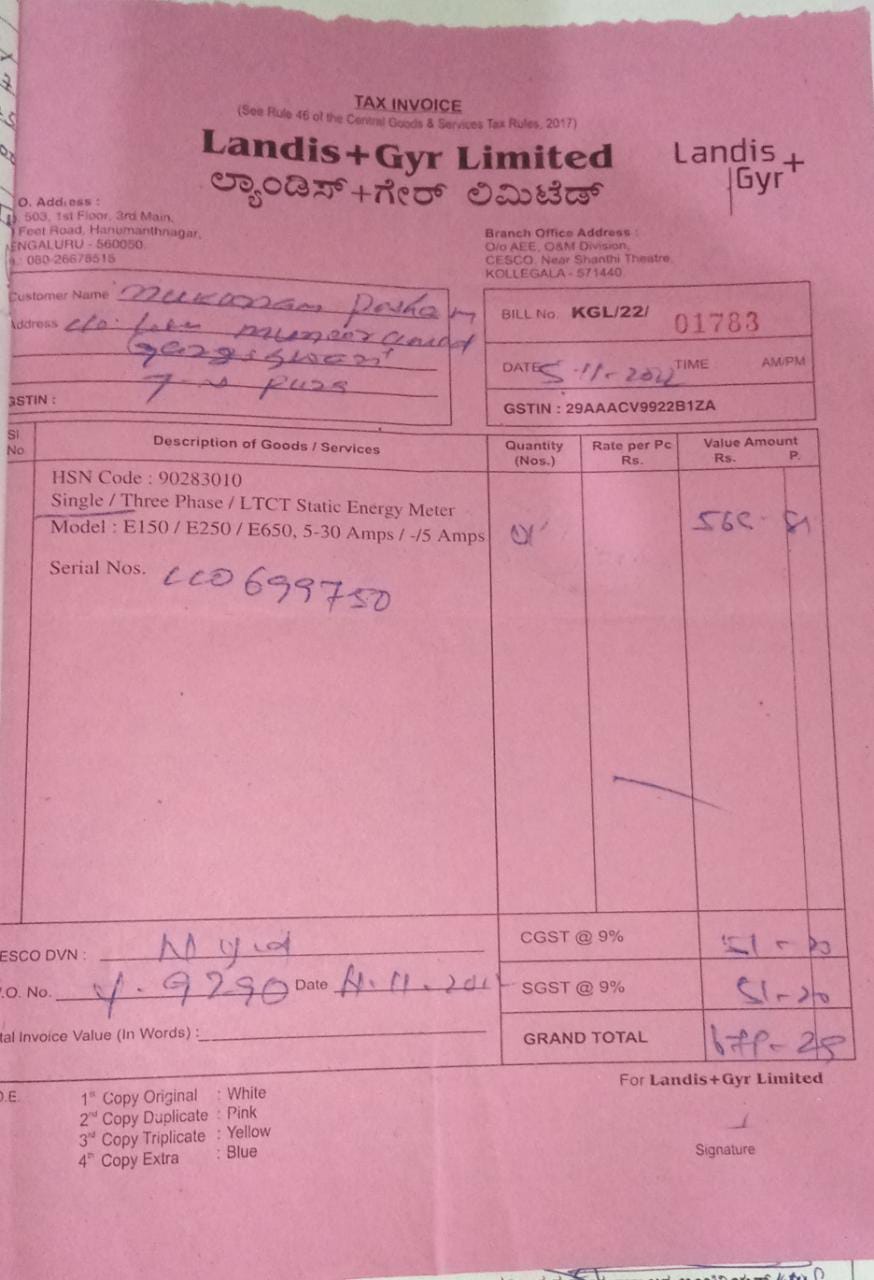 TAX INVOICE
(See Rule 46 of the Central Goods & Services Tax Rules, 2017)
Landis+Gyr Limited
ಲ್ಯಾಂಡಿಸ್+ಗೇರ್ ಲಿಮಿಟೆಡ್
Landis+
Gyr
O. Address :
503, 1st Floor, 3rd Main,
Feet Road, Hanumanthnagar,
ENGALURU - 560050
: 080-26678515
Branch Office Address :
O/o AEE, O&M Division,
CESCO, Near Shanthi Theatre,
KOLLEGALA - 571440
Customer Name
Address c/o.
GSTIN :
BILL No. KGL/22/ 01783
DATE 5-11-2022 TIME AM/PM
GSTIN : 29AAACV9922B1ZA
Sl No. Description of Goods / Services Quantity (Nos.) Rate per Pc Rs. Value Amount Rs. P.
HSN Code : 90283010
Single / Three Phase / LTCT Static Energy Meter
Model : E150 / E250 / E650, 5-30 Amps / -/5 Amps 01
Serial Nos.
ESCO DVN :
.O. No. 9290 Date
tal Invoice Value (In Words) :
CGST @ 9%
SGST @ 9% 51-20
GRAND TOTAL
For Landis+Gyr Limited
Signature
O.E. 1st Copy Original : White
2nd Copy Duplicate : Pink
3rd Copy Triplicate : Yellow
4th Copy Extra : Blue